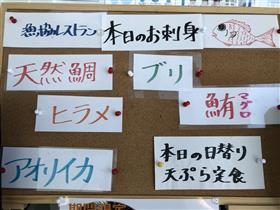 漁協レストラン
本日のお刺身
天然鯛
ブリ
ヒラメ
鮪マグロ
アオリイカ
本日の日替り
天ぷら定食